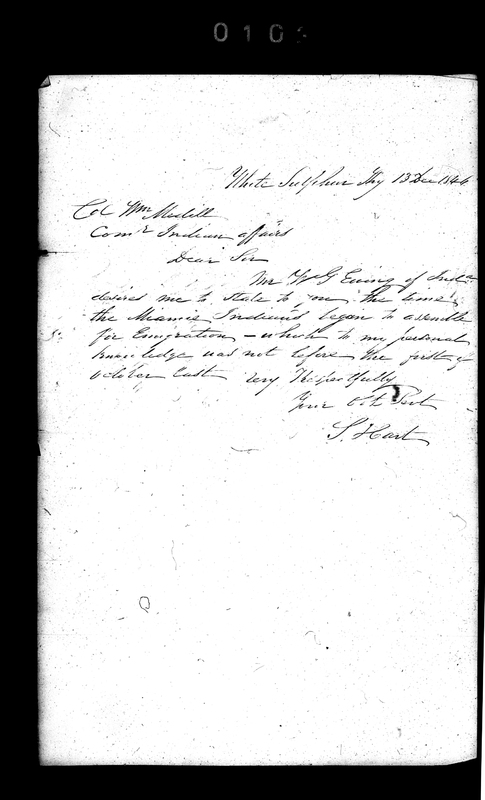 010
White Sulphur Ky 13 Dec 1846
Col Wm Medill
Comr Indian affairs
Dear Sir
Mr W G Ewing of Inda
desires me to state to you the time
the Miamie Indians began to assemble
for Emigration - which to my personal
knowledge was not before the first of
October last Very Respectfully
Your Obt Servt
S. Hart